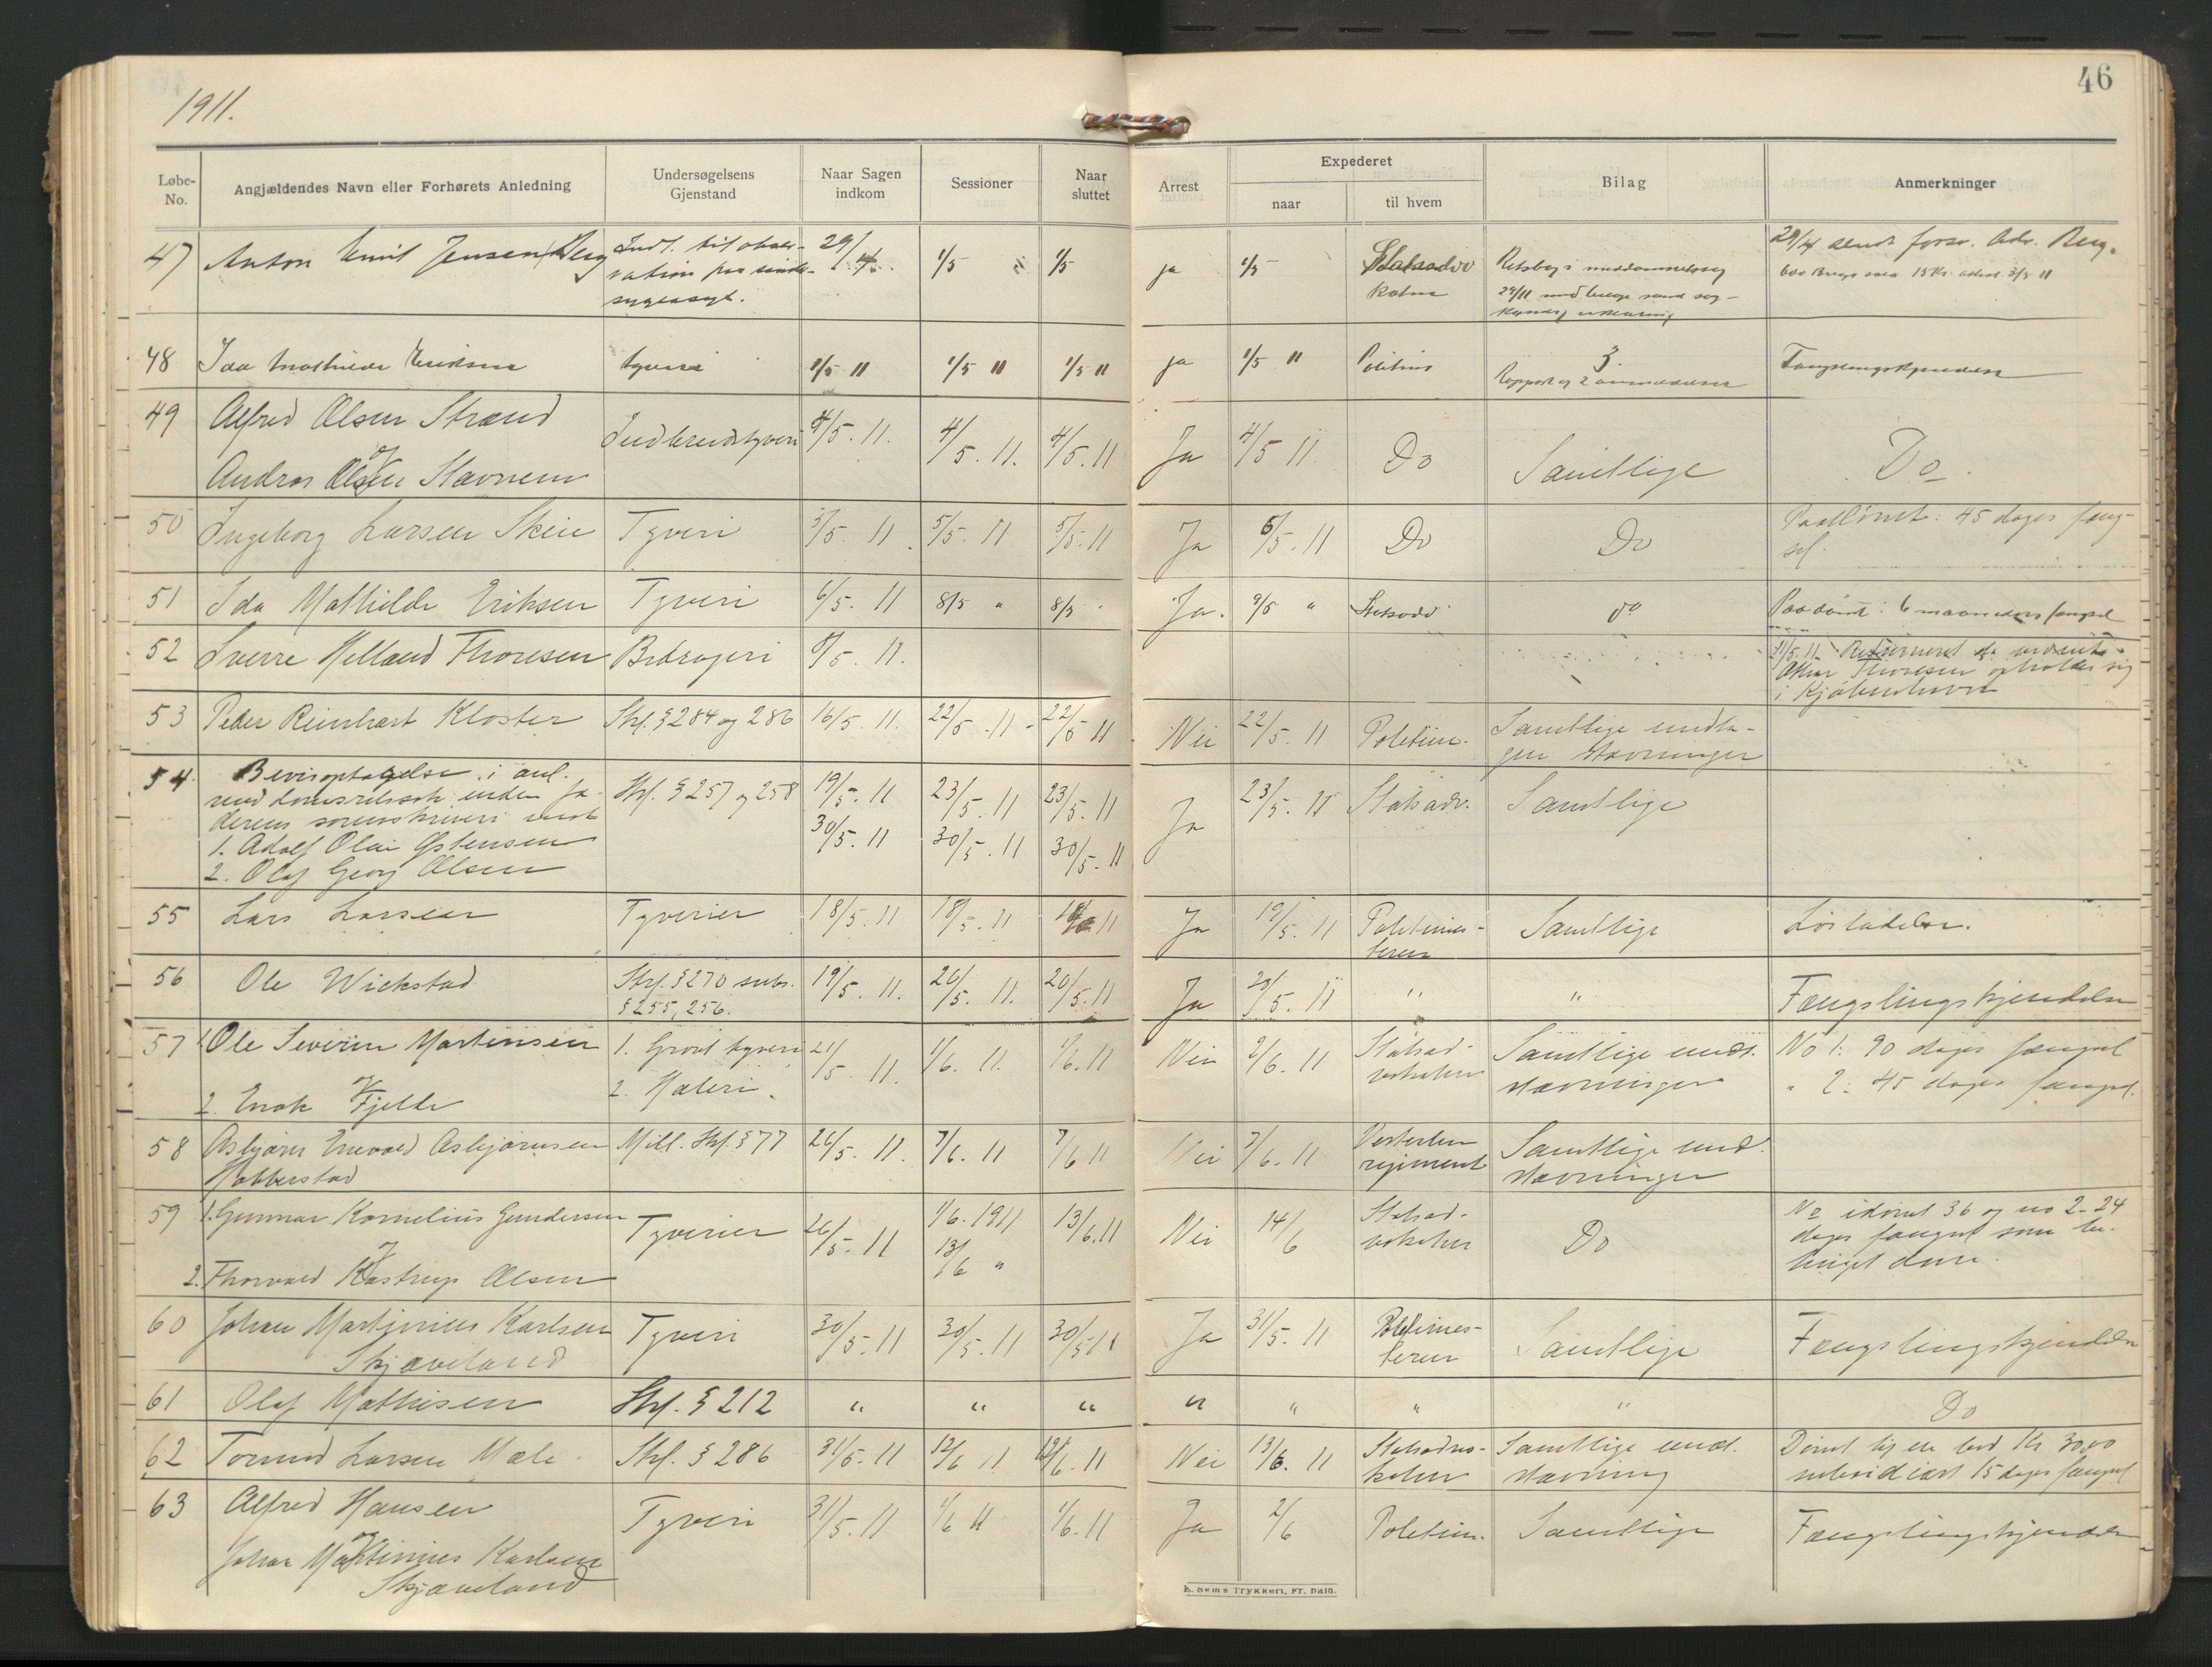 1911.
46
Løbe-No.
Angjældendes Navn eller Forhørets Anledning
Undersøgelsens Gjenstand
Naar Sagen indkom
Sessioner
Naar sluttet
Arrest
Expederet
naar
til hvem
Bilag
Anmerkninger
47 Anton Emil Jensen Berg Indl. til obser- 29/4 1/5 1/5 ja 1/5 Statsadvo 29/4 sendt forsv. Adv. Berg.
vation paa sinds- katen
sygeasyl.
48 Ida Mathilde Eriksen tyveri 1/5 11 1/5 11 1/5 11 ja 1/5 11 Politims 3 Fængslingskjendelse
Rapport og 2 anmeldelser
49 Alfred Olsen Strand Indbrudstyveri 4/5. 11. 4/5. 11. 4/5. 11 Ja 4/5 11. Do Samtlige Do.
og
Andreas Olsen Stavnem
50 Ingeborg Larsen Skeie Tyveri 5/5. 11. 5/5. 11 5/5. 11 Ja 6/5. 11 Do Do Paadømt: 45 dages fæng-
sel.
51 Ida Mathilde Eriksen Tyveri 6/5. 11 8/5 " 8/5 " Ja. 9/5 " Statsadv do Paadømt: 6 maaneders fængsel
52 Sverre Helland Thoresen Bedrageri 8/5. 11. Returneret da
Thoresen opholder sig
i Kjøbenhavn
53 Peder Reinhart Kloster Strl. § 284 og 286 16/5. 11. 22/5. 11 - 22/5 11 Nei 22/5. 11 Politim. Samtlige undta-
gen stævninger
54 Bevisoptagelse i anl. Strl. § 257 og 258 19/5. 11 23/5. 11 23/5. 11 Ja 23/5. 11 Statsadv. Samtlige
med domsretssak under Jæ-
derens sorenskriveri mot 30/5. 11 30/5. 11 30/5. 11
1. Adolf Olai Østensen
2. Olaf Georg Olsen
55 Lars Larsen Tyverier 18/5. 11 18/5. 11 Ja 19/5. 11 Politimes- Samtlige Løsladelse.
teren
56 Ole Wickstad Strl. § 270 subs. 19/5. 11. 20/5. 11. 20/5. 11 Ja 20/5. 11 " " Fængslingskjendelse
§ 255, 256.
57 1. Ole Severin Martinsen 1. Grovt tyveri 21/5. 11. 1/6. 11. 1/6. 11 Nei 2/6. 11 Statsad- Samtlige undt. No 1: 90 dages fængsel
og vokaten stævninger " 2: 45 dages fængsel.
2. Enok Fjelde 2. Hæleri.
58 Asbjørn Enevald Asbjørnsen Mill. Strl. § 77 26/5. 11. 7/6. 11 7/6 11 Nei 7/6. 11 Vesterlen Samtlige und.
Habberstad regiment stævninger
59 1. Gunnar Kornelius Gundersen Tyverier 26/5. 11 1/6. 1911 13/6. 11 Nei 14/6 Statsad- Do No idømt 36 og no 2 - 24
og 13/6 " vokaten dages fængsel som be-
2. Thorvald Kastrup Olsen tinget dom.
60 Johan Martinius Karlsen Tyveri 30/5. 11 30/5. 11 30/5 11 Ja 31/5. 11 Politimes- Samtlige Fængslingskjendelse
Skjæveland teren
61 Olaf Mathisen Strl. § 212 " " " " " " " Do
62 Tormod Larsen Mæle. Strl. § 286 31/5. 11 12/6 11 12/6. 11 Nei 13/6. 11 Statsadvo- Samtlige und. Dømt til en bod Kr 30,00
katen stævning subsidiært 15 dages fængsel
63 Alfred Hansen Tyveri 31/5. 11 1/6 11 1/6. 11 Ja 2/6 Politim. Samtlige Fængslingskjendelse
og
Johan Martinius Karlsen
Skjæveland
E. Sem's Trykkeri, Fr. hald.